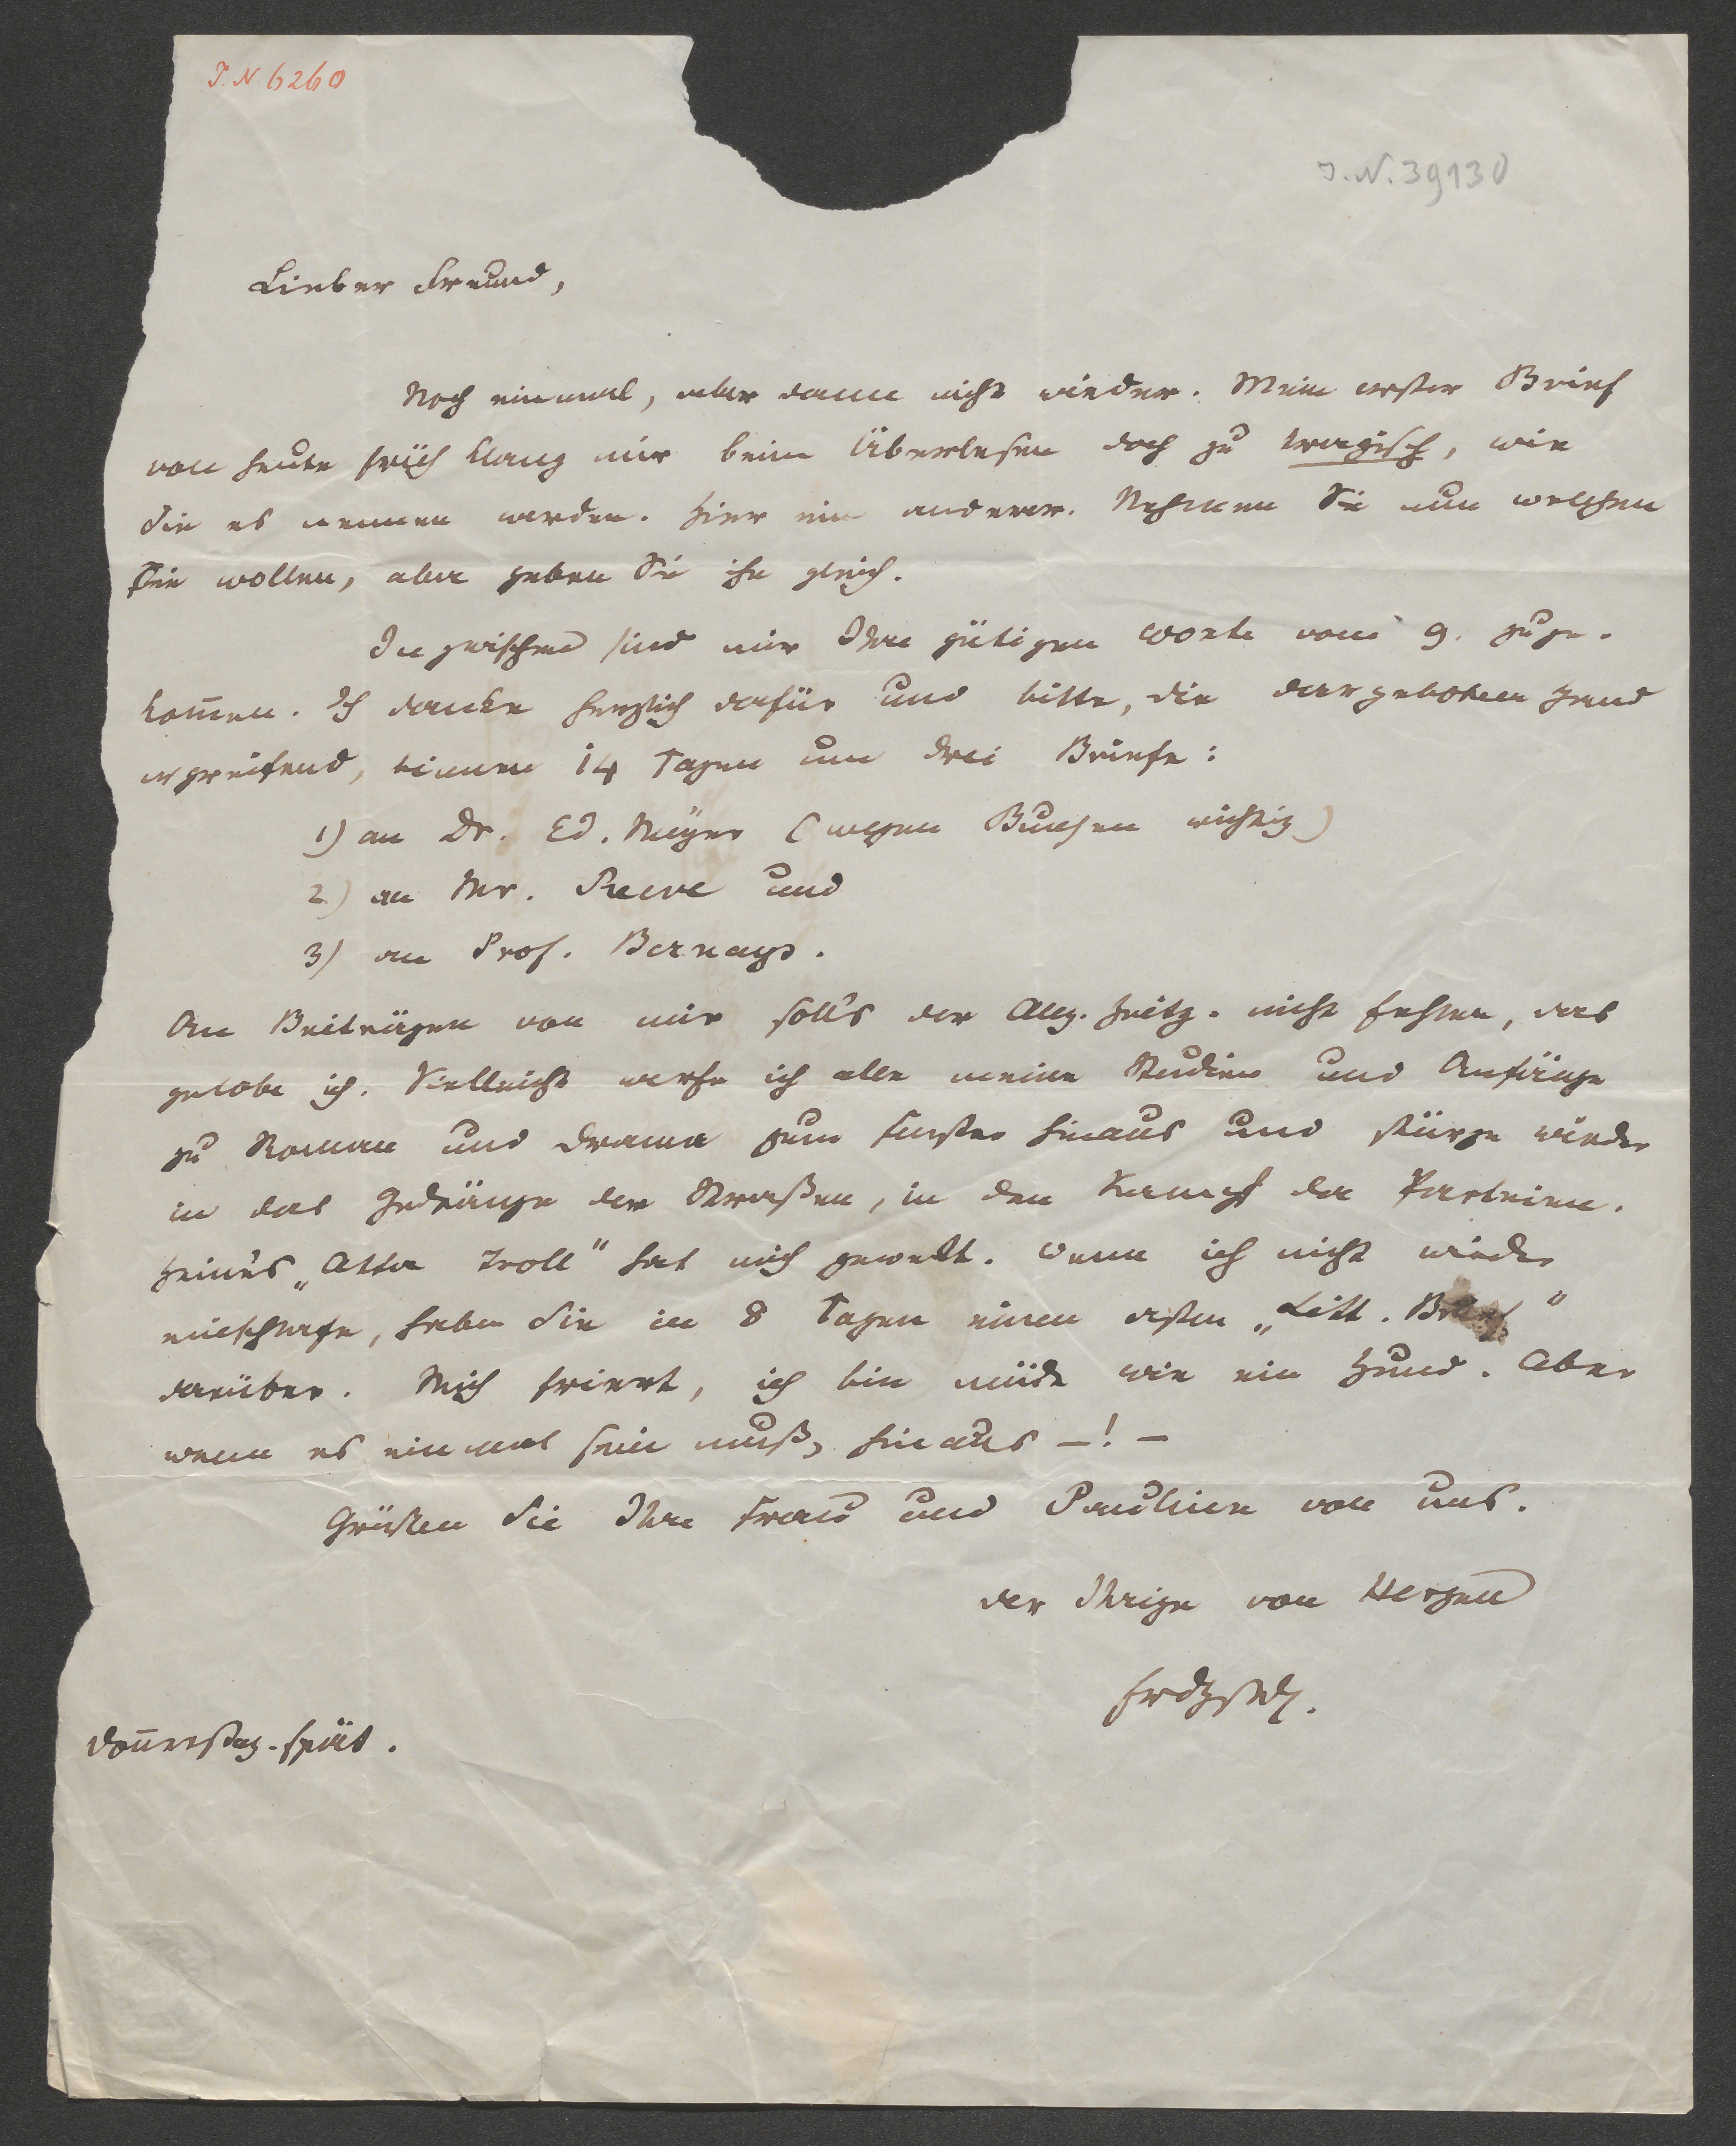 I. N 6260
I. N. 39130
Lieber Freund,
Noch einmal, aber dann nicht wieder. Mein erster Brief
von heute früh klang mir beim Überlesen doch zu tragisch, wie
Sie es nennen werden. Hier ein anderer. Nehmen Sie nun welchen
Sie wollen, aber geben Sie ihn gleich.
Inzwischen sind mir Ihre gütigen Worte vom 9. zuge-
kom̄en. Ich danke herzlich dafür und bitte, die dargebotene Hand
ergreifend, binnen 14 Tagen um drei Briefe:
1) an Dr. Ed. Meyer (wegen Bunsen wichtig)
2) an Mr. Reeve und
3) an Prof. Bernays.
An Beiträgen von mir soll's der Allg. Zeitg. nicht fehlen, das
gelobe ich. Vielleicht werfe ich alle meine Studien und Anfänge
zu Roman und Drama zum Fenster hinaus und stürze wieder
in das Gedränge der Straßen, in den Kampf der Parteien.
Heine's „Atta Troll" hat mich geweckt. Wenn ich nicht wieder
einschlafe, haben Sie in 8 Tagen einen ersten „Litt. Brief"
darüber. Mich friert, ich bin müde wie ein Hund. Aber
wenn es einmal sein muß, hinaus –! –
Grüßen Sie Ihre Frau und Paulinen von uns.
der Ihrige von Herzen
Frdgstdt.
Don̄erstag - spät.